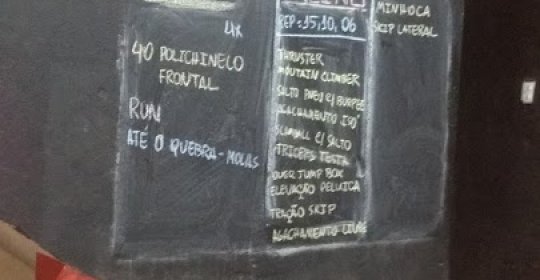 4X
40 POLICHINELO
FRONTAL
RUN
ATÉ O QUEBRA-MOLAS
REP: 15, 10, 06
THRUSTER
MOUTAIN CLIMBER
SALTO PNEU C/ BURPEE
AGACHAMENTO ISO
C/ SALTO
TRICEPS TESTA
OVER JUMP BOX
ELEVAÇÃO PELVICA
TRAÇÃO SKIP
AGACHAMENTO LIVRE
MINHOCA
SKIP LATERAL